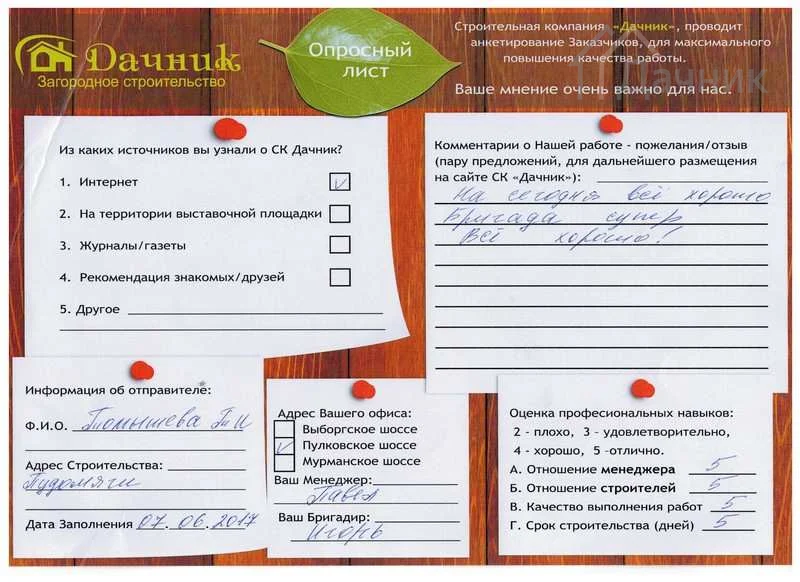 Дачник
Загородное строительство
Опросный
лист
Строительная компания «Дачник», проводит
анкетирование Заказчиков, для максимального
повышения качества работы.
Ваше мнение очень важно для нас.
Дачник
Из каких источников вы узнали о СК Дачник?
1. Интернет V
2. На территории выставочной площадки
3. Журналы/газеты
4. Рекомендация знакомых/друзей
5. Другое
Комментарии о Нашей работе - пожелания/отзыв
(пару предложений, для дальнейшего размещения
на сайте СК «Дачник»):
На сегодня всё хорошо
Бригада супер
Всё хорошо!
Информация об отправителе:
Ф.И.О. Томышева Т И
Адрес Строительства:
Пудомяги
Дата Заполнения 07.06.2017
Адрес Вашего офиса:
Выборгское шоссе
V Пулковское шоссе
Мурманское шоссе
Ваш Менеджер:
Павел
Ваш Бригадир:
Игорь
Оценка професиональных навыков:
2 - плохо, 3 - удовлетворительно,
4 - хорошо, 5 -отлично.
А. Отношение менеджера 5
Б. Отношение строителей 5
В. Качество выполнения работ 5
Г. Срок строительства (дней) 5